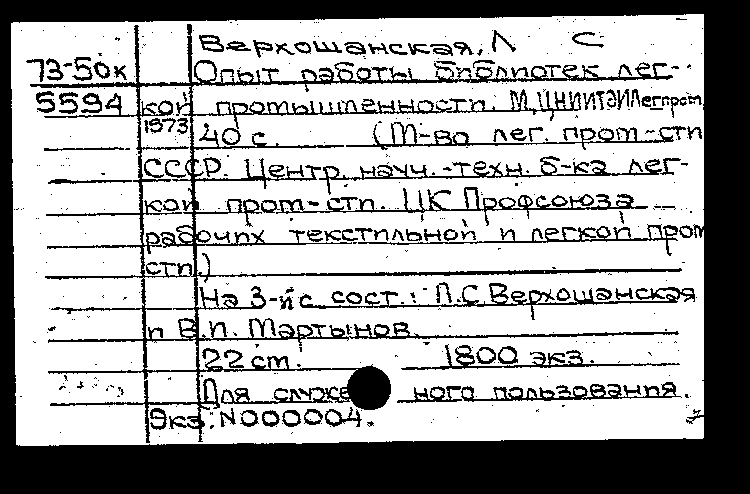 Верхошанская, Л С
73-50к Опыт работы библиотек лег-
5594 кой промышленности. М, ЦНИИТЭИЛегпром,
1973 40 с. (М-во лег. пром-сти
СССР. Центр. науч.-техн. б-ка лег-
кой пром-сти. ЦК Профсоюза
рабочих текстильной и легкой пром
сти)
На 3-й с. сост.: Л.С. Верхошанская
и В.И. Мартынов.
22 см. 1800 экз.
Для служе ного пользования.
Экз. N000004.